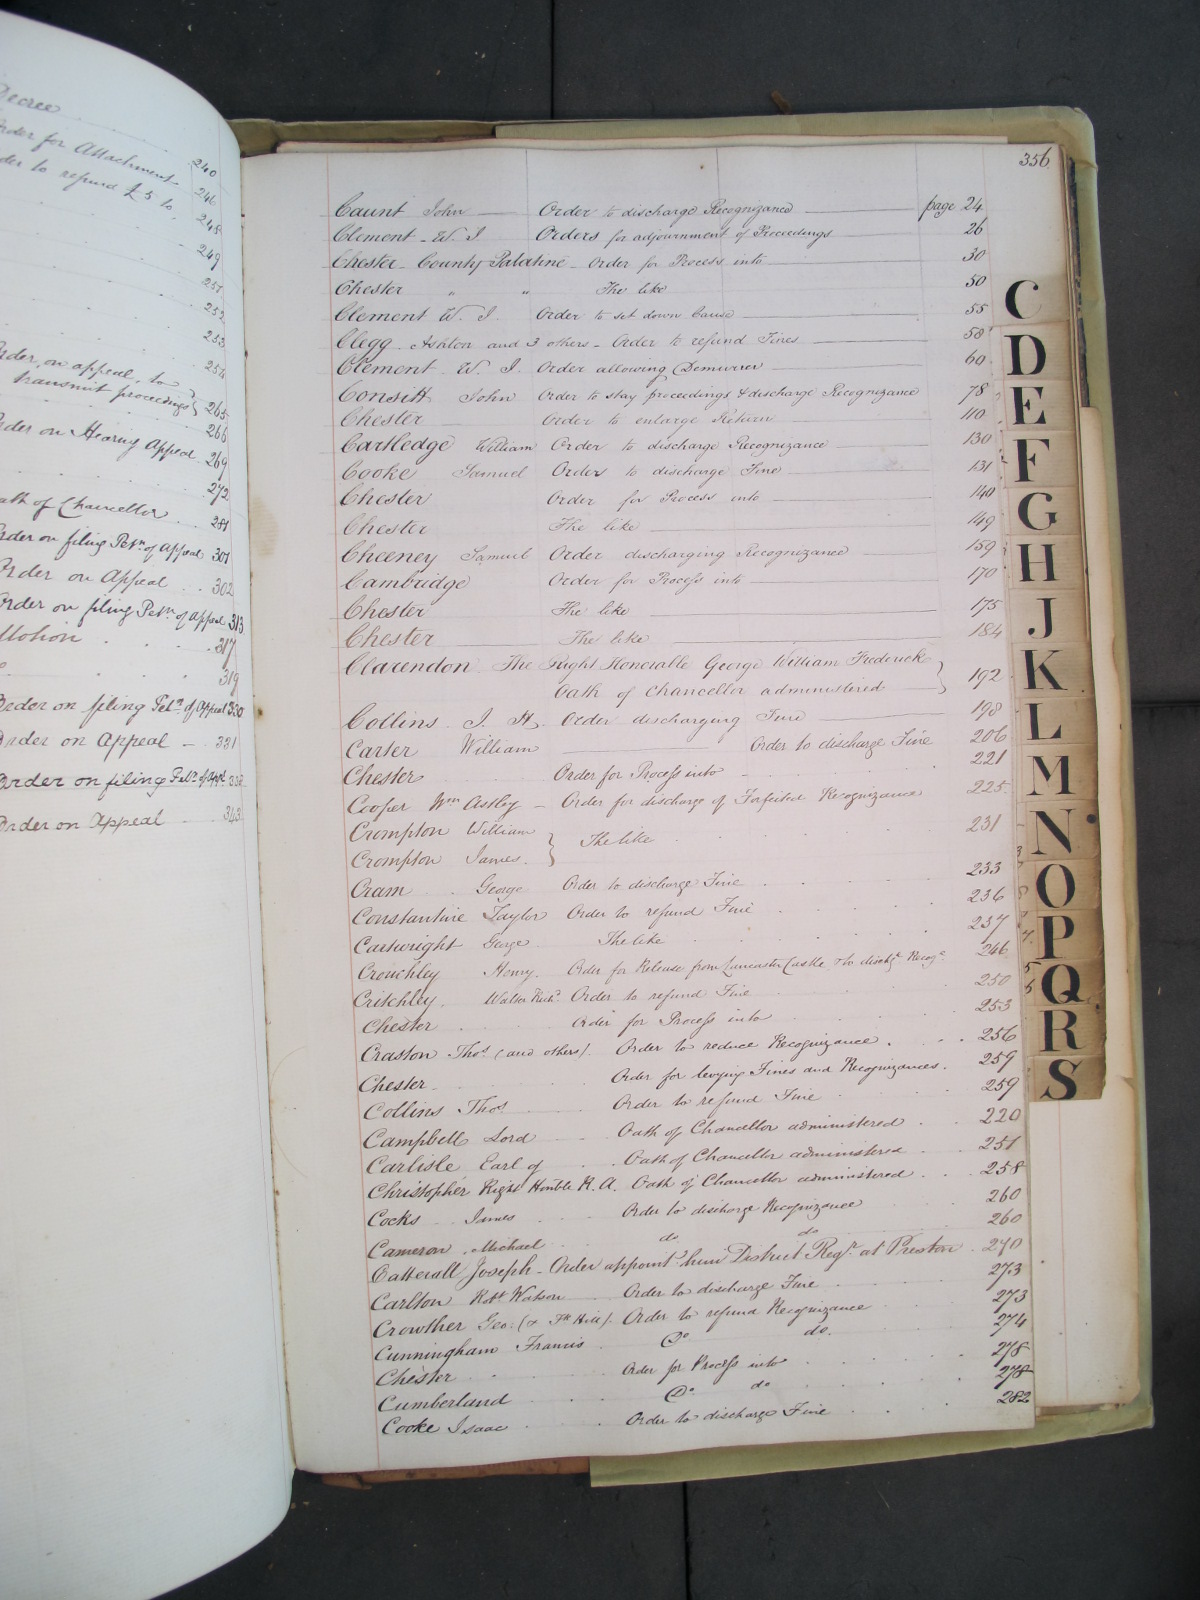 Decree
Order for Attachment 240
der to refund £5 to, 246
248
249
251
252
253
254
Order, on appeal, to
transmit proceedings } 265
266
der on Hearing Appeal 269
272
ath of Chancellor 281
der on filing Petn. of Appeal 301
Order on Appeal 302
Order on filing Petn. of Appeal 313
Motion 317
319
Order on filing Petn. of Appeal 330
Order on Appeal 331
Order on filing Petn. of Appl.
Order on Appeal 343
356
Caunt John Order to discharge Recognizance page 24
Clement W. J. Orders for adjournment of Proceedings 26
Chester County Palatine Order for Process into 30
Chester " " The like 50
Clement W. J. Order to set down Cause 55
Clegg Ashton and 3 others - Order to refund Fines 58
Clement W. J. Order allowing Demurrer 60
Consitt John Order to stay proceedings & discharge Recognizance 78
Chester Order to enlarge Return 110
Cartledge William Order to discharge Recognizance 130
Cooke Samuel Order to discharge Fine 131
Chester Order for Process into 140
Chester The like 149
Cheeney Samuel Order discharging Recognizance 159
Cambridge Order for Process into 170
Chester The like 175
Chester The like 184
Clarendon The Right Honorable George William Frederick
Oath of Chancellor administered } 192
Collins J. H. Order discharging Fine 198
Carter William Order to discharge Fine 206
Chester Order for Process into 221
Cooper Wm Astley - Order for discharge of Forfeited Recognizance 225
Crompton William } The like 231
Crompton James
Cram George Order to discharge Fine 233
Constantine Taylor Order to refund Fine 236
Cartwright George The like 237
Crouchley Henry. Order for Release from Lancaster Castle & to dischge Recoge 246
Critchley Walter Richd. Order to refund Fine 250
Chester Order for Process into 253
Craston Thos. (and others). Order to reduce Recognizance 256
Chester Order for levying Fines and Recognizances. 259
Collins Thos Order to refund Fine 259
Campbell Lord Oath of Chancellor administered 220
Carlisle Earl of Oath of Chancellor administered 251
Christopher Right Honble R. A. Oath of Chancellor administered 258
Cocks James Order to discharge Recognizance 260
Cameron Michael do do 260
Catterall Joseph - Order appointg. him District Regr. at Preston 270
Carlton Robt Watson Order to discharge Fine 273
Crowther Geo: (& Hill). Order to refund Recognizance 273
Cunningham Francis Do do. 274
Chester Order for Process into 278
Cumberland Do do 278
Cooke Isaac Order to discharge Fine 282
C
D
E
F
G
H
J
K
L
M
N
O
P
Q
R
S